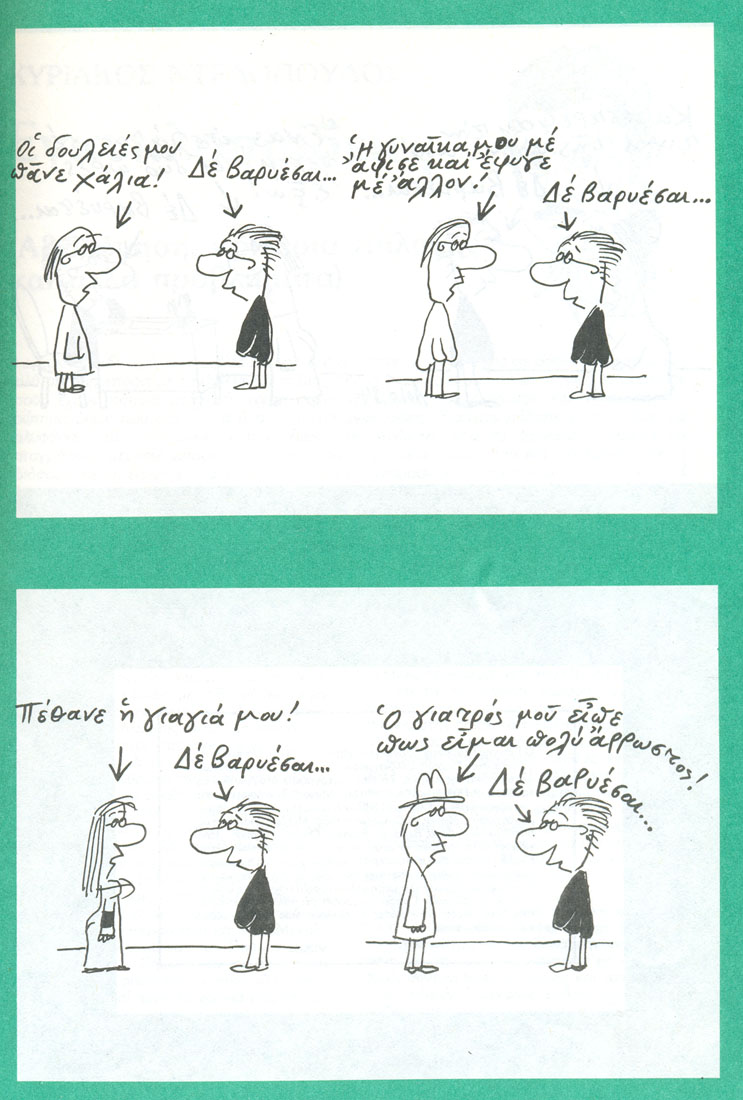 Οἱ δουλειές μου
πᾶνε χάλια!
Δέ βαρυέσαι...
Ἡ γυναῖκα μου μέ
ἄφισε καί ἔφυγε
μέ ἄλλον!
Δέ βαρυέσαι...
Πέθανε ἡ γιαγιά μου!
Δέ βαρυέσαι...
Ὁ γιατρός μοῦ εἶπε
πως εἶμαι πολύ ἄρρωστος!
Δέ βαρυέσαι...